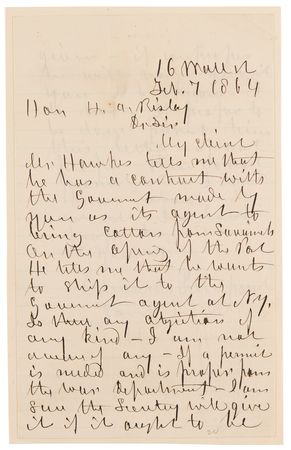 16 Wall St
Feb. 7 1864
Hon H. A. Risley
Dr Sir.
My client
Mr. Hawkes tells me that
he has a contract with
the Goverment made by
you as its agent to
bring cotton from Savannah
on the opening of the Port
He tells me that he wants
to ship it to the
Goverment agent at N.Y.
Is there any objection of
any kind - I am not
aware of any - If a permit
is needed and is proper from
the war department - I am
sure the Secretary will give
it if it ought to be